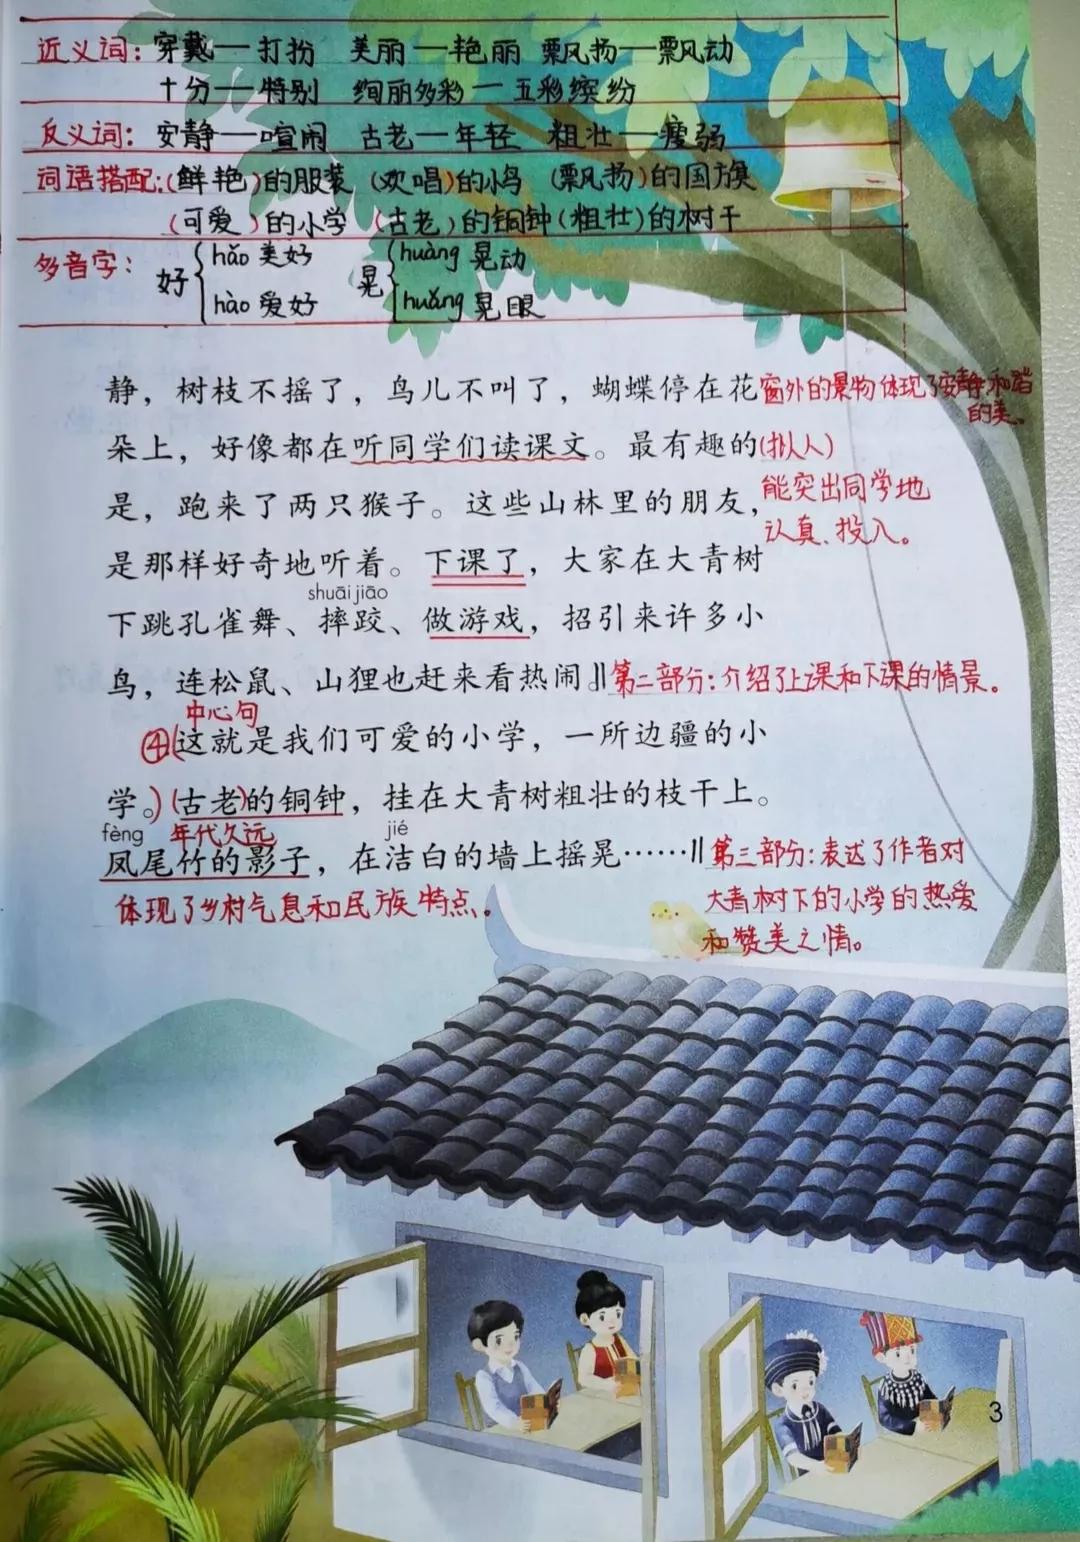 近义词：穿戴—打扮 美丽—艳丽 飘扬—飘动
十分—特别 绚丽多彩—五彩缤纷
反义词：安静—喧闹 古老—年轻 粗壮—瘦弱
词语搭配：(鲜艳)的服装 (欢唱)的小鸟 (飘扬)的国旗
(可爱)的小学 (古老)的铜钟 (粗壮)的树干
多音字：好{hǎo 美好 晃{huàng 晃动
hào 爱好 huǎng 晃眼
静，树枝不摇了，鸟儿不叫了，蝴蝶停在花 窗外的景物体现了安静和谐
的美。
朵上，好像都在听同学们读课文。最有趣的 (拟人)
是，跑来了两只猴子。这些山林里的朋友， 能突出同学地
认真、投入。
是那样好奇地听着。下课了，大家在大青树
shuāi jiāo
下跳孔雀舞、摔跤、做游戏，招引来许多小
鸟，连松鼠、山狸也赶来看热闹。‖第二部分：介绍了上课和下课的情景。
中心句
④(这就是我们可爱的小学，一所边疆的小
学。)(古老)的铜钟，挂在大青树粗壮的枝干上。
fèng 年代久远 jié
凤尾竹的影子，在洁白的墙上摇晃……‖第三部分：表达了作者对
体现了乡村气息和民族特点。 大青树下的小学的热爱
和赞美之情。
3